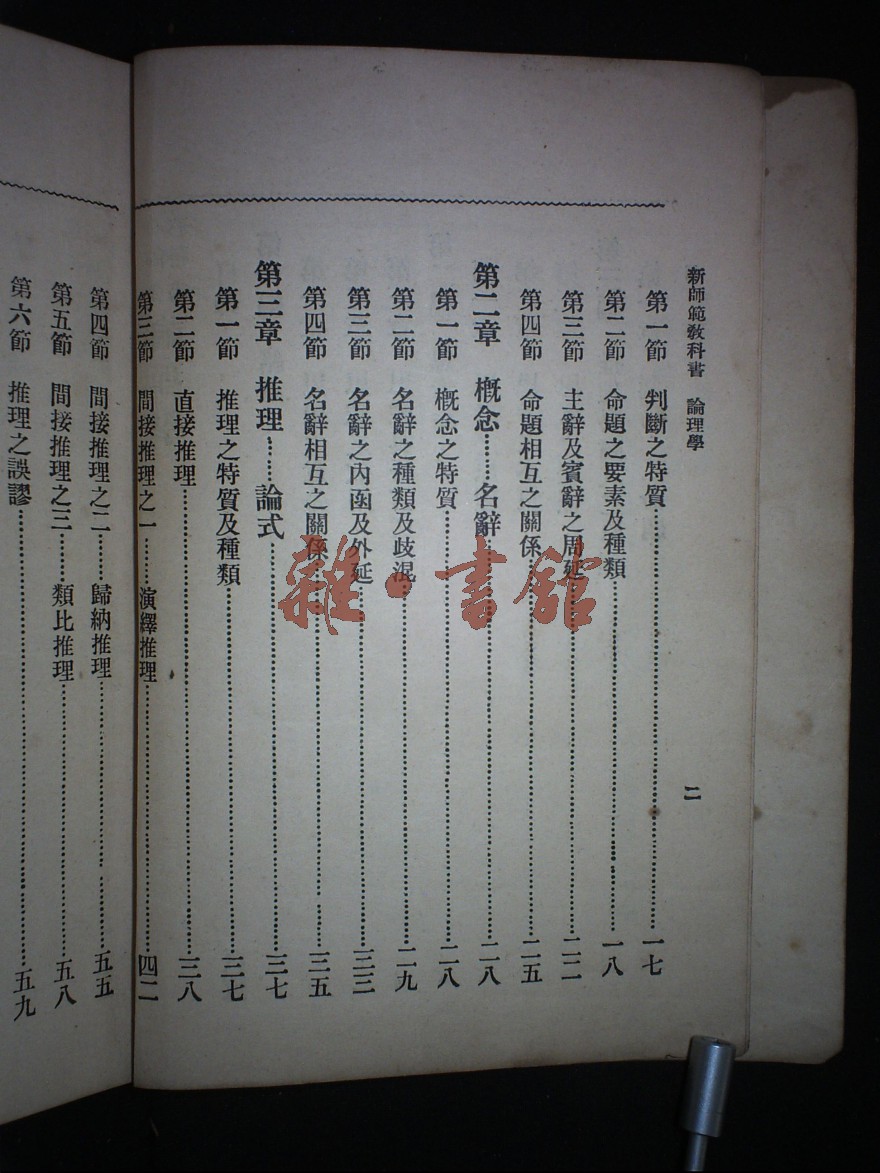 新師範教科書　論理學　二
第一節　判斷之特質……一七
第二節　命題之要素及種類……一八
第三節　主辭及賓辭之周延……二二
第四節　命題相互之關係……二五
第二章　概念……名辭……二八
第一節　概念之特質……二八
第二節　名辭之種類及歧混……二九
第三節　名辭之內函及外延……三三
第四節　名辭相互之關係……三五
第三章　推理……論式……三七
第一節　推理之特質及種類……三七
第二節　直接推理……三八
第三節　間接推理之一……演繹推理……四二
第四節　間接推理之二……歸納推理……五五
第五節　間接推理之三……類比推理……五八
第六節　推理之誤謬……五九
雜·書館